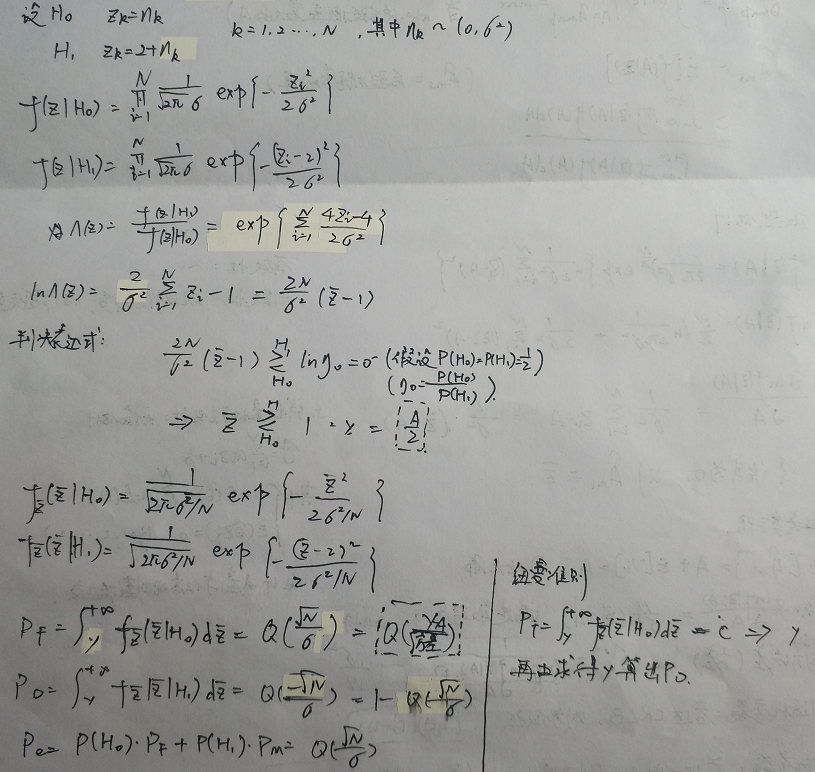 设 H₀ z_k = n_k k=1,2…,N ,其中 n_k ~ (0, σ²)
H₁ z_k = 2+n_k
f(z|H₀) = ∏_{i=1}^{N} 1/(√2π σ) exp{-z_i²/2σ²}
f(z|H₁) = ∏_{i=1}^{N} 1/(√2π σ) exp{-(z_i-2)²/2σ²}
Λ(z) = f(z|H₁)/f(z|H₀) = exp{∑_{i=1}^{N} (4z_i-4)/2σ²}
lnΛ(z) = 2/σ² ∑_{i=1}^{N} z_i-1 = 2N/σ² (z̄-1)
判决表达式: 2N/σ² (z̄-1) ≷_{H₀}^{H₁} lnη₀ = 0 (假设 P(H₀)=P(H₁)=1/2)
(η₀ = P(H₀)/P(H₁)).
⇒ z̄ ≷_{H₀}^{H₁} 1 · γ = A/2
f_z̄(z̄|H₀) = 1/√(2πσ²/N) exp{-z̄²/(2σ²/N)}
f_z̄(z̄|H₁) = 1/√(2πσ²/N) exp{-(z̄-2)²/(2σ²/N)}
P_F = ∫_γ^{+∞} f_z̄(z̄|H₀) dz̄ = Q(√N/σ) =
P_D = ∫_γ^{+∞} f_z̄(z̄|H₁) dz̄ = Q(-√N/σ) = 1 - Q(√N/σ)
Pe = P(H₀)·P_F + P(H₁)·P_M = Q(√N/σ)
准则
P_F = ∫_γ^{+∞} f_z̄(z̄|H₀) dz̄ = c ⇒ γ
再由求得γ算出P_D.